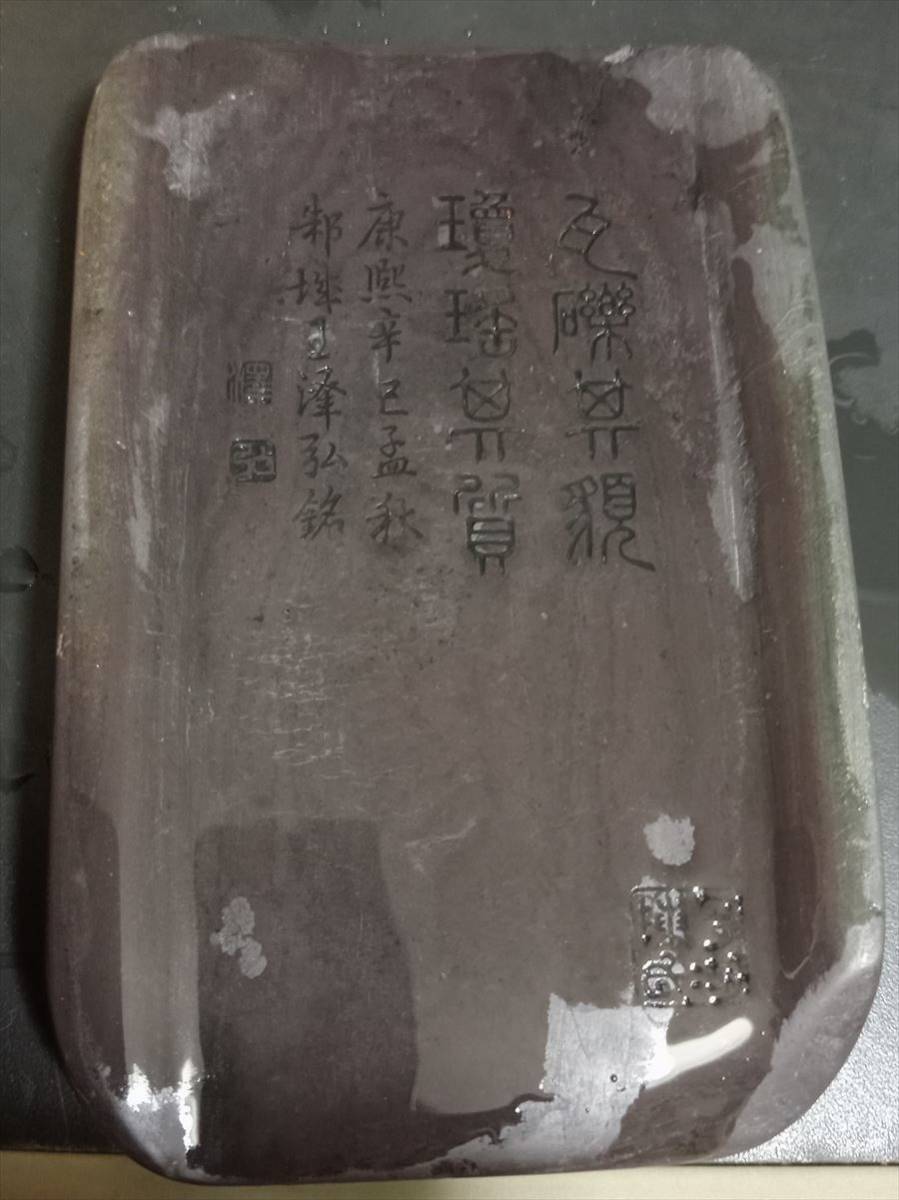 瓦礫其貌
瓊瑤其質
康熙辛巳孟秋
邾城王澤弘銘
澤